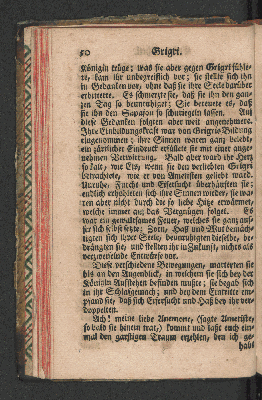 50 Grigri.
Königin trüge; was sie aber gegen Grigri fühle-
te, kam ihr unbegreiflich vor; sie stellte sich ihn
in Gedanken vor, ohne daß sie ihre Seele darüber
erbitterte. Es schmerzte sie, daß sie ihn den gan-
zen Tag so beunruhiget; Sie bereuete es, daß
sie ihn den Sapajou so schmeicheln lassen. Auf
diese Gedanken folgten aber weit angenehmere.
Ihre Einbildungskraft war von Grigris Bildung
eingenommen; ihre Sinnen waren ganz belebt;
ein zärtlicher Eindruck erfüllte sie mit einer ange-
nehmen Verwirrung. Bald aber ward ihr Herz
so kalt, wie Eis, wenn sie den verliebten Grigri
betrachtete, wie er von Ameristen geliebt ward.
Unruhe, Furcht und Eifersucht überhäuften sie;
endlich erholeten sich ihre Sinnen wieder; sie wa-
ren aber nicht durch die so liebe Hitze erwärmet,
welche immer auf das Vergnügen folget. Es
war ein gewaltsames Feuer, welches sie ganz aus-
ser sich selbst setzte; Zorn, Haß und Wut bemäch-
tigten sich ihrer Seele, beunruhigten dieselbe, be-
drängten sie, und stellten ihr in Zukunft, nichts als
verzweifelnde Entwürfe vor.
Diese verschiedene Bewegungen, marterten sie
bis an den Augenblick, in welchem sie sich bey der
Königin Aufstehen befinden mußte; sie begab sich
in ihr Schlafgemach; und bey dem Eintritte em-
pfand sie, daß sich Eifersucht und Haß bey ihr ver-
doppelten.
Ach! meine liebe Amerette, (sagte Ameriste,
so bald sie herein trat,) kommt und laßt euch ein-
mal den garstigen Traum erzehlen, den ich ge-
habt